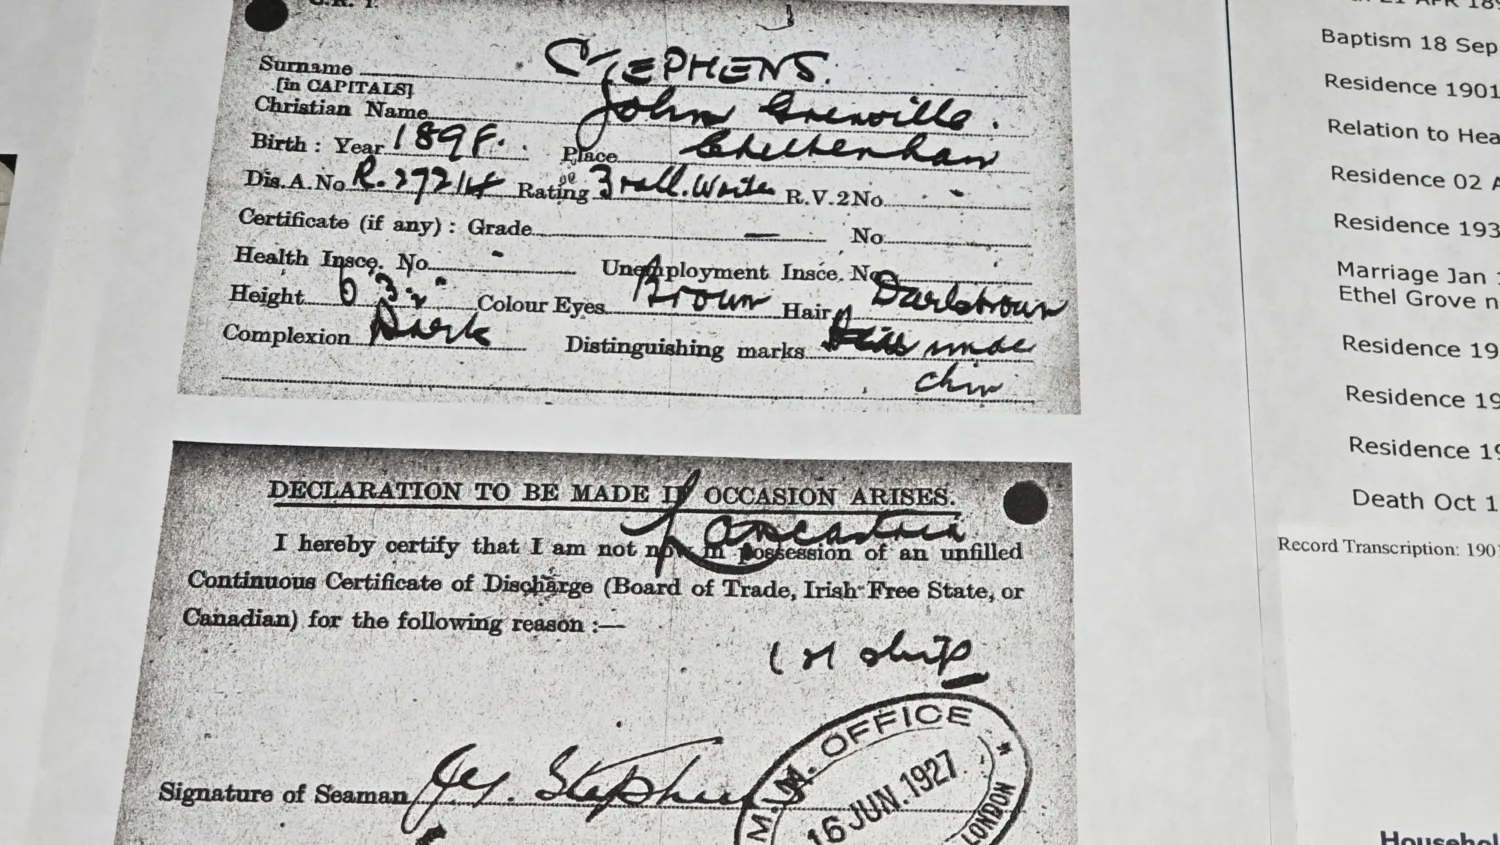 Surname STEPHENS.
[in CAPITALS]
Christian Name John Grenville.
Birth: Year 189 Place Cheltenham
Dis. A. No. R. Rating R.V.2 No.
Certificate (if any): Grade — No.
Health Insce. No. - Unemployment Insce. No.
Height 6 Colour Eyes Brown Hair Darkbrown
Complexion Dark Distinguishing marks
chin
DECLARATION TO BE MADE IF OCCASION ARISES.
Lancastria
I hereby certify that I am not now in possession of an unfilled
Continuous Certificate of Discharge (Board of Trade, Irish Free State, or
Canadian) for the following reason :—
1st ship
Signature of Seaman Stephens
M.M. OFFICE
16 JUN. 1927
LONDON
21 APR 189
Baptism 18 Sep
Residence 1901
Relation to Hea
Residence 02 A
Residence 193
Marriage Jan
Ethel Grove n
Residence 19
Residence 19
Residence 19
Death Oct 1
Record Transcription: 190
Household